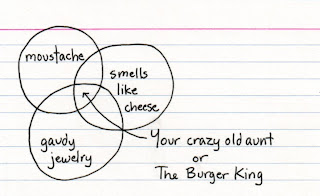 moustache
smells
like
cheese
gaudy
jewelry
Your crazy old aunt
or
The Burger King